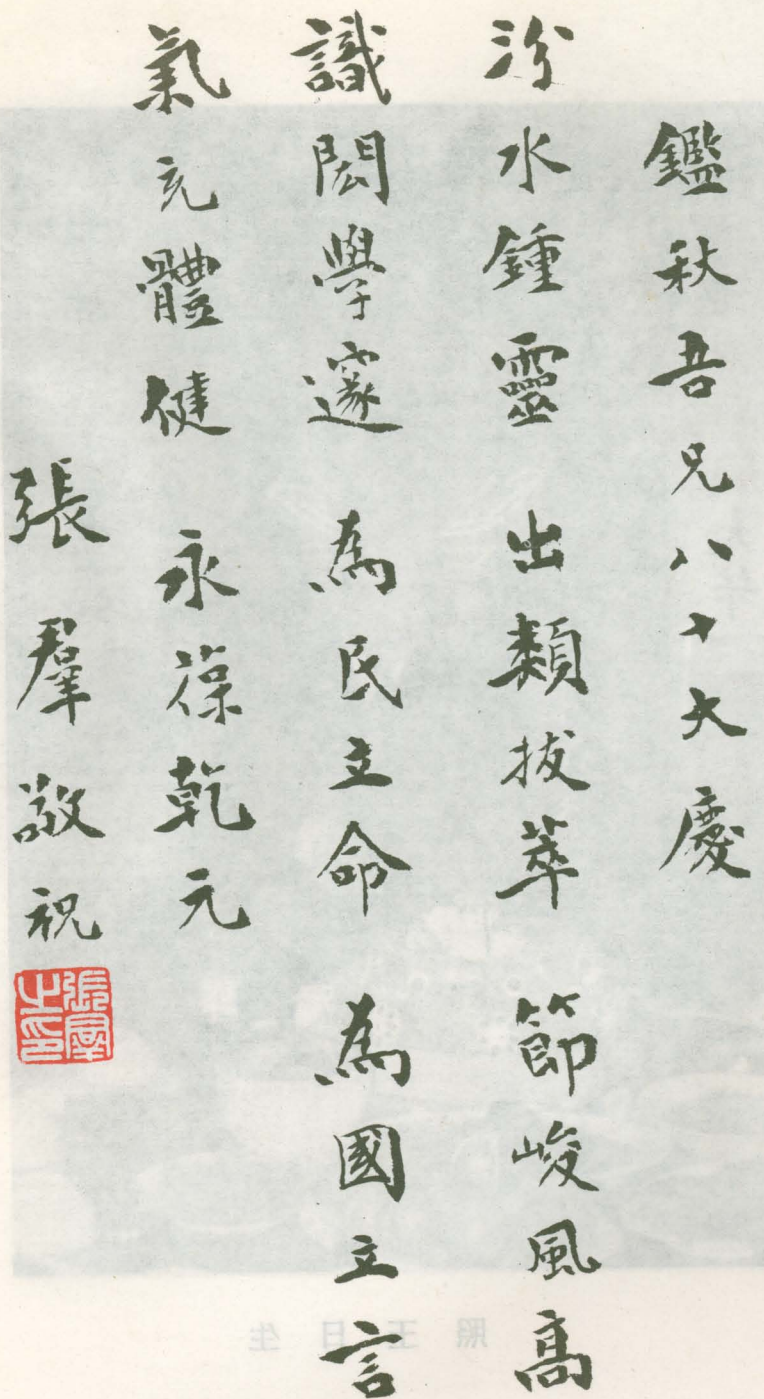 鑑秋吾兄八十大慶
汾水鍾靈 出類拔萃 節峻風高
識閎學邃 為民立命 為國立言
氣充體健 永葆乾元
張羣敬祝
張羣之印